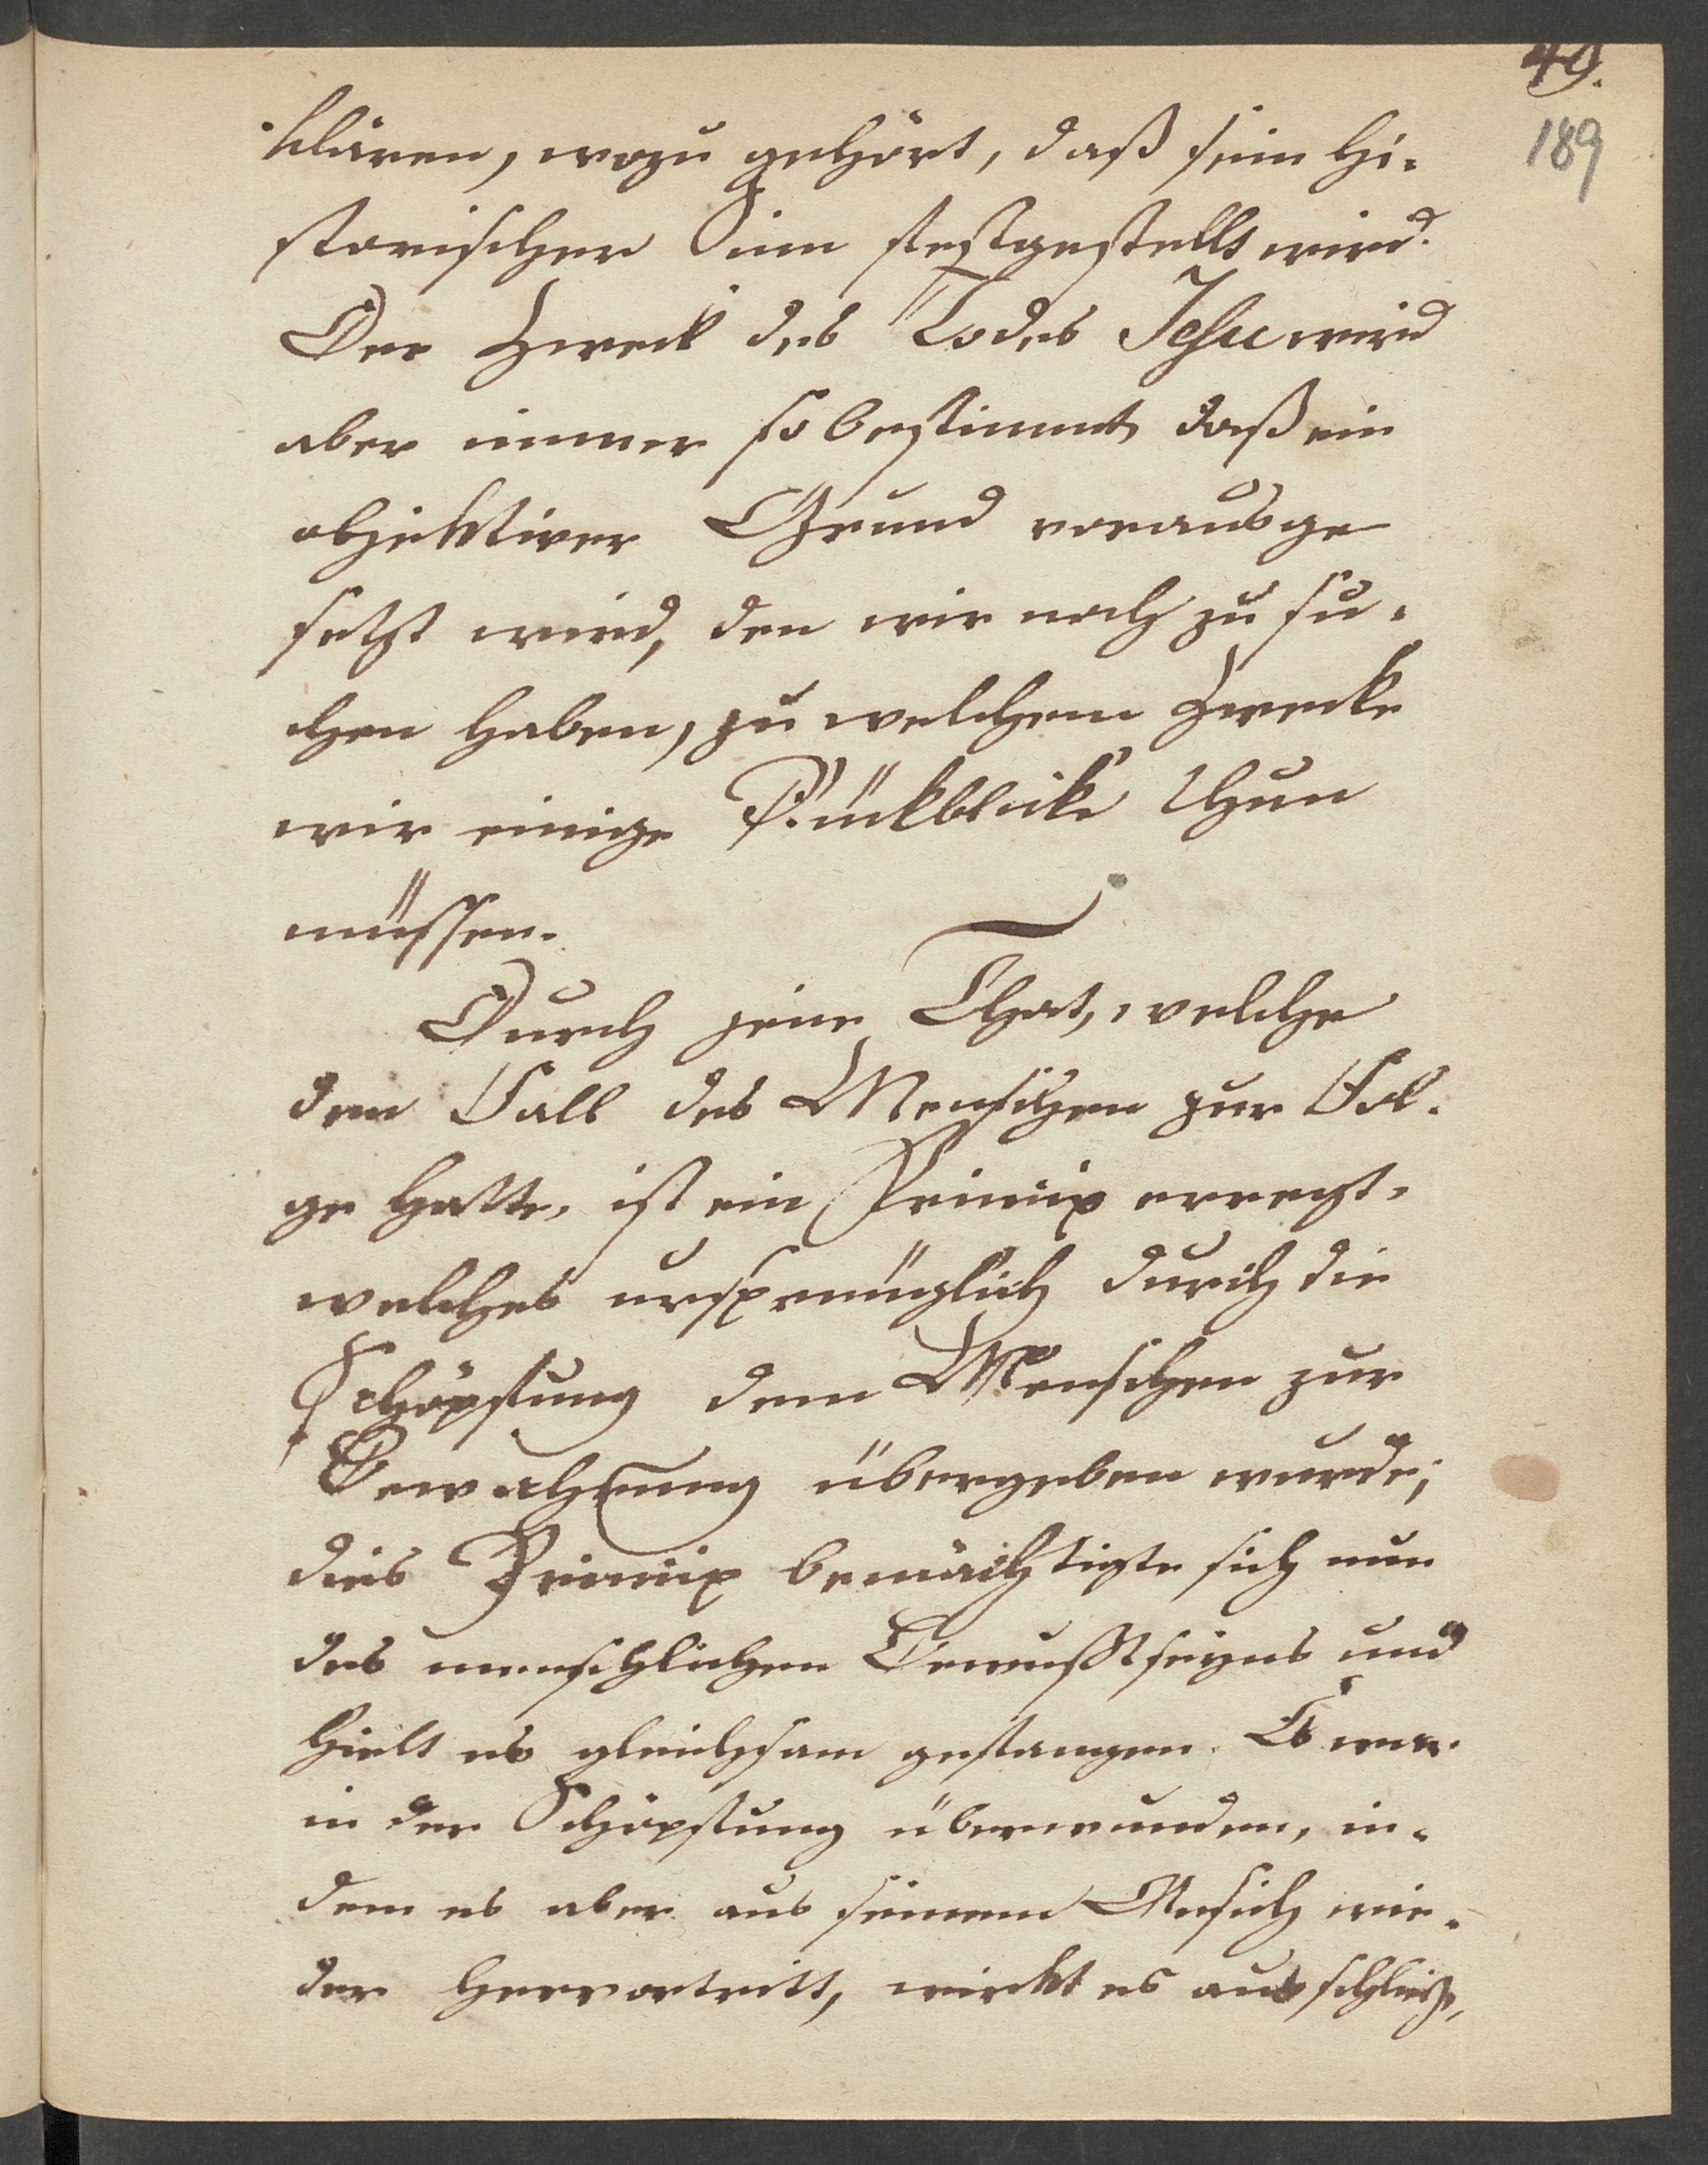 49.
189
klären, wozu gehört, daß sein hi-
storischer Sinn festgestellt wird.
Der Zweck des Todes Jesu wird
aber immer so bestimmt, daß ein
objektiver Grund vorausge
setzt wird, den wir noch zu su-
chen haben, zu welchem Zwecke
wir einige Rückblicke thun
müssen.
Durch jene That, welche
den Fall des Menschen zur Fol-
ge hatte, ist ein Princip erregt,
welches ursprünglich durch die
Schöpfung dem Menschen zur
Bewahrung übergeben wurde;
dies Princip bemächtigte sich nun
des menschlichen Bewußtseyns und
hielt es gleichsam gefangen. Es war
in der Schöpfung überwunden, in-
dem es aber aus seinem Ansich wie-
der hervortritt, wirkt es ausschließ,